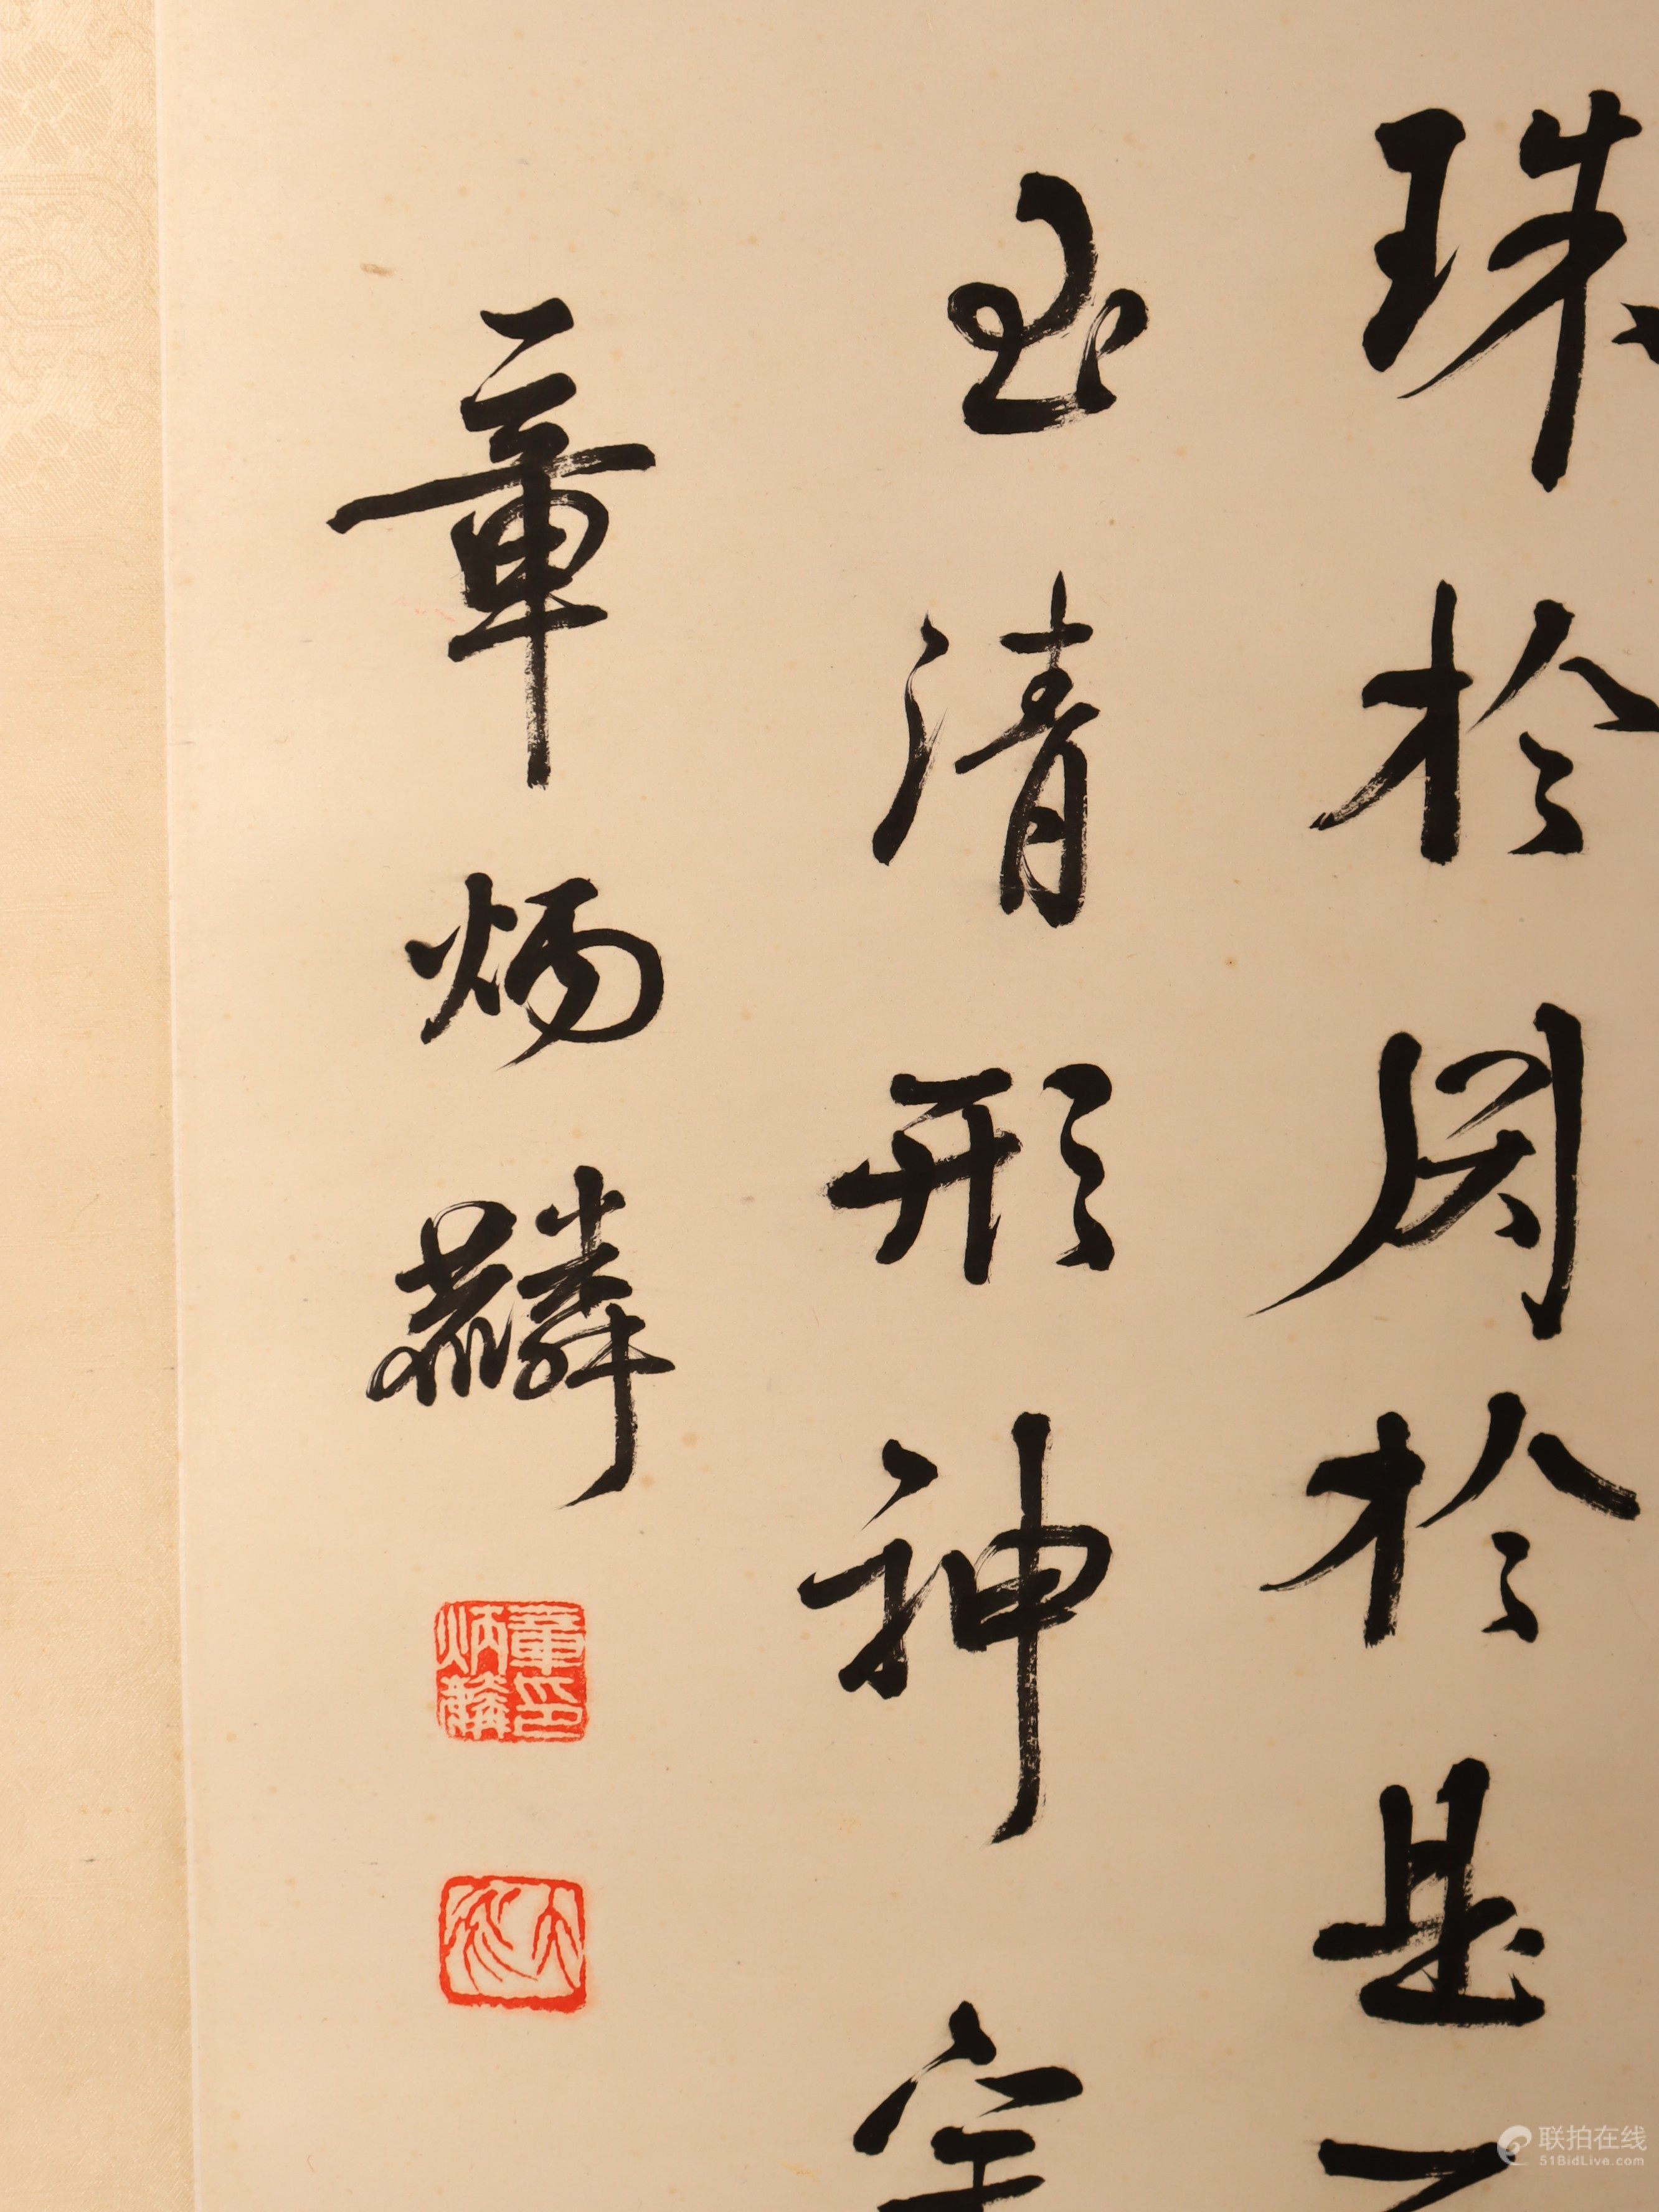 珠於於是
清形神
章炳麟
章炳麟印
太炎
联拍在线
51BidLive.com